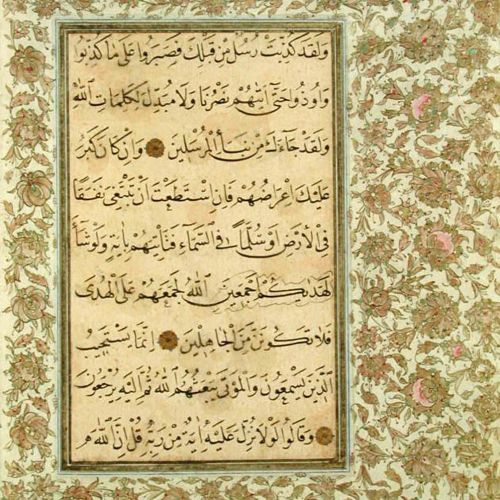 وَلَقَدْ كُذِّبَتْ رُسُلٌ مِنْ قَبْلِكَ فَصَبَرُوا عَلَى مَا كُذِّبُوا
وَاُوذُوا حَتَّى اَتٰيهُمْ نَصْرُنَا وَلَا مُبَدِّلَ لِكَلِمَاتِ اللّٰهِ
وَلَقَدْ جَاءَكَ مِنْ نَبَأِ الْمُرْسَلِينَ وَاِنْ كَانَ كَبُرَ
عَلَيْكَ اِعْرَاضُهُمْ فَاِنِ اسْتَطَعْتَ اَنْ تَبْتَغِيَ نَفَقًا
فِي الْاَرْضِ اَوْ سُلَّمًا فِي السَّمَاءِ فَتَأْتِيَهُمْ بِاٰيَةٍ وَلَوْ شَاءَ
لَهَدٰيكُمْ اَجْمَعِينَ اللّٰهُ لَجَمَعَهُمْ عَلَى الْهُدٰى
فَلَا تَكُونَنَّ مِنَ الْجَاهِلِينَ اِنَّمَا يَسْتَجِيبُ
الَّذِينَ يَسْمَعُونَ وَالْمَوْتٰى يَبْعَثُهُمُ اللّٰهُ ثُمَّ اِلَيْهِ يُرْجَعُونَ
وَقَالُوا لَوْلَا نُزِّلَ عَلَيْهِ اٰيَةٌ مِنْ رَبِّهِ قُلْ اِنَّ اللّٰهَ